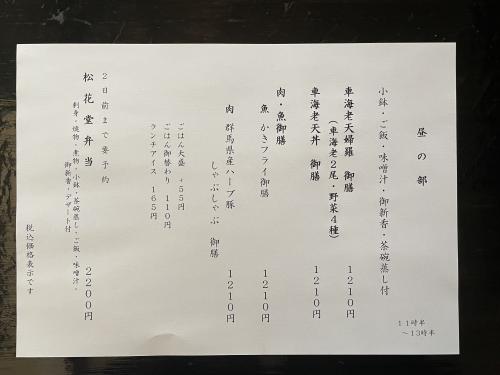 昼の部
11時半
～13時半
小鉢・ご飯・味噌汁・御新香・茶碗蒸し付
車海老天婦羅 御膳 1210円
（車海老2尾・野菜4種）
車海老天丼 御膳 1210円
肉・魚御膳
魚 かきフライ御膳 1210円
肉 群馬県産ハーブ豚
しゃぶしゃぶ 御膳 1210円
ごはん大盛 +55円
ごはん御替わり 110円
ランチアイス 165円
2日前まで要予約
松花堂弁当 2200円
刺身・焼物・煮物・小鉢・茶碗蒸し・ご飯・味噌汁・
御新香・デザート付
税込価格表示です